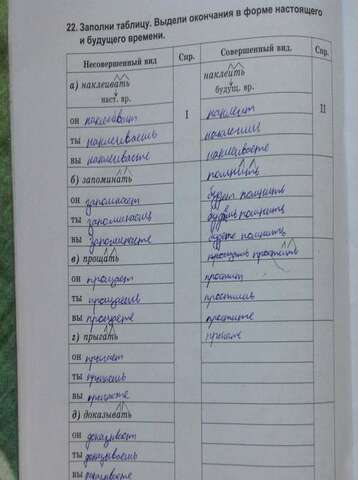 22. Заполни таблицу. Выдели окончания в форме настоящего
и будущего времени.
Несовершенный вид Спр. Совершенный вид. Спр.
а) наклеивать наклеить
наст. вр. будущ. вр.
он наклеивает I наклеит II
ты наклеиваешь наклеишь
вы наклеиваете наклеиваете
б) запоминать помнить
он запоминает будет помнить
ты запоминаешь будешь помнить
вы запоминаете будете помнить
в) прощать прощать простить
он прощает простит
ты прощаешь простишь
вы прощаете простите
г) прыгать
он прыгает
ты
вы
д) доказывать
он доказывает
ты доказываешь
вы доказываете